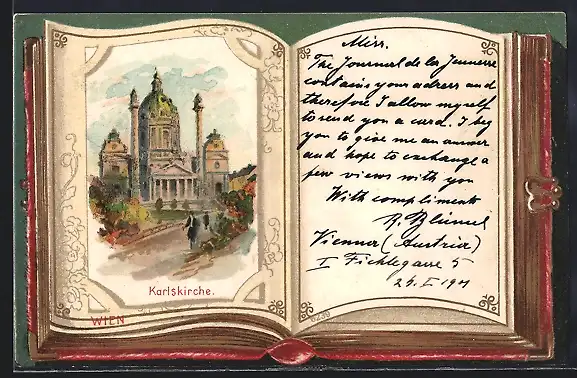 Miss.
The Journal de la Jeunesse
contains your adress and
therefore I allow myself
to send you a card. I beg
you to give me an answer
and hope to exchange a
few views with you
With compliments
R. Blümel
Vienna (Austria)
I Fichtegasse 5
29. I 1901
Karlskirche.
WIEN
6239